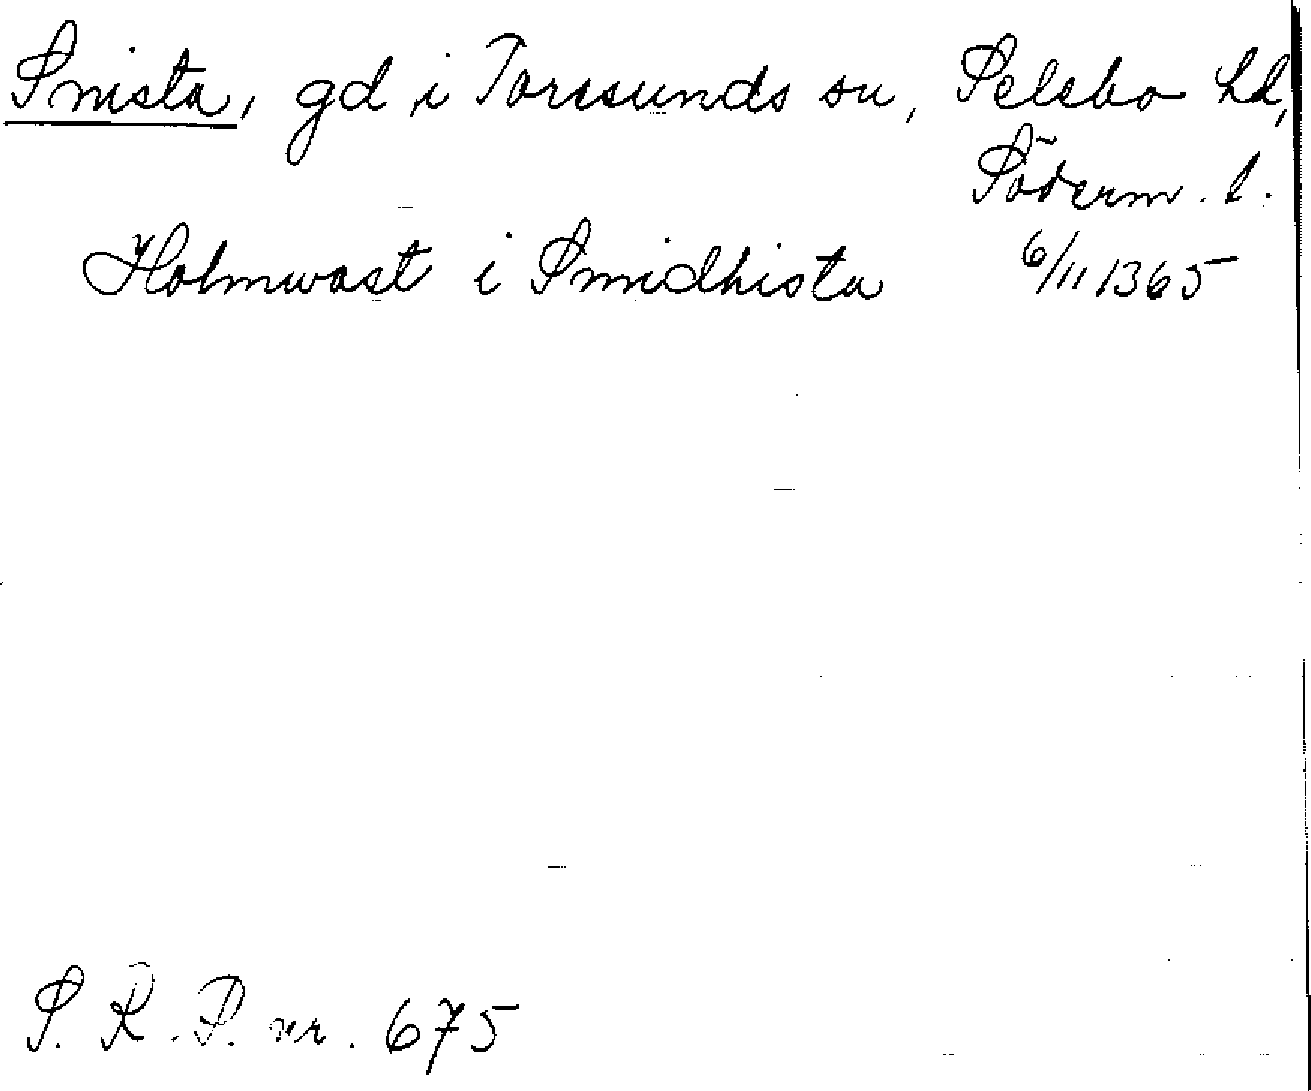 Snista, gd i Toresunds sn, Selebo hd,
Söderm. l.
Holmwast i Smidhista 6/11 1365
S. R. P. nr. 675